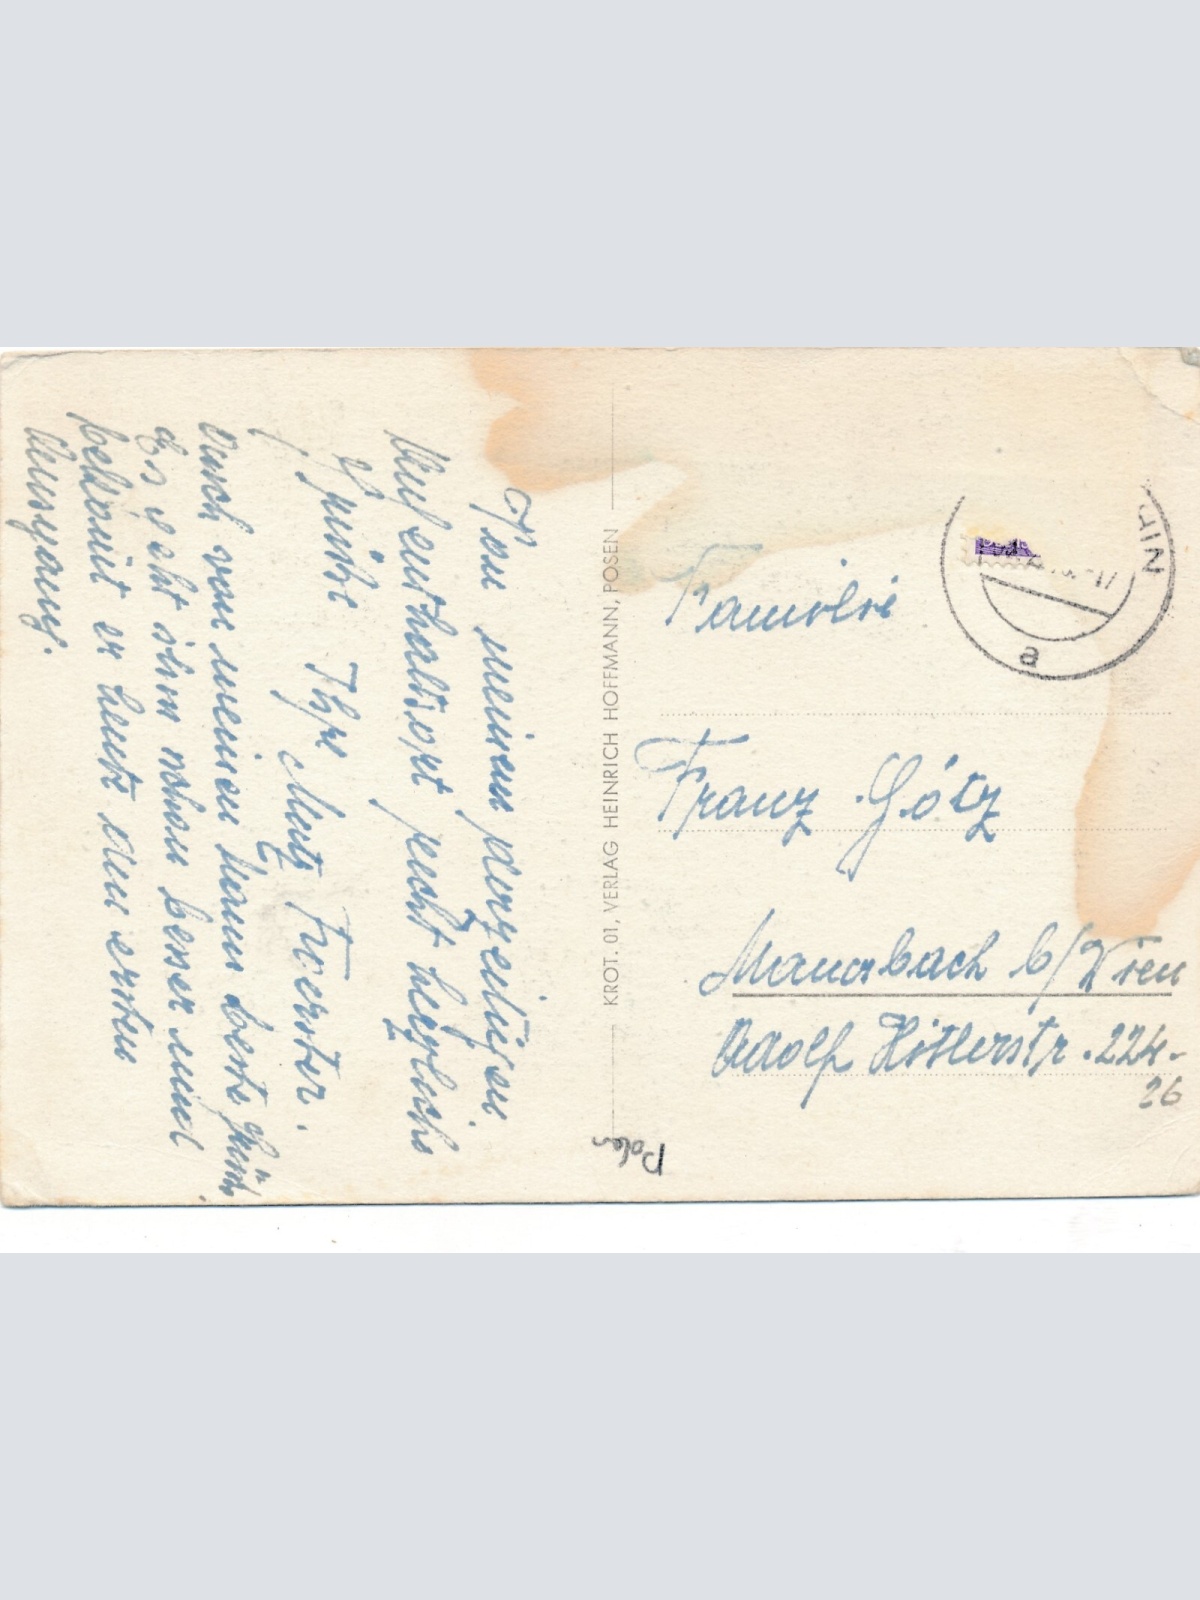 Von meinem derzeitigen
Aufenthaltsort recht herzliche
Grüße Ihre Mary Foerster.
Auch von meinem Mann beste Grüße.
Es geht ihm schon besser und
bekomt er heute den ersten
Ausgang.
KROT. 01, VERLAG HEINRICH HOFFMANN, POSEN
Polen
a
Familie
Franz Götz
Mauerbach b/Wien
Adolf Hitlerstr. 224.
26